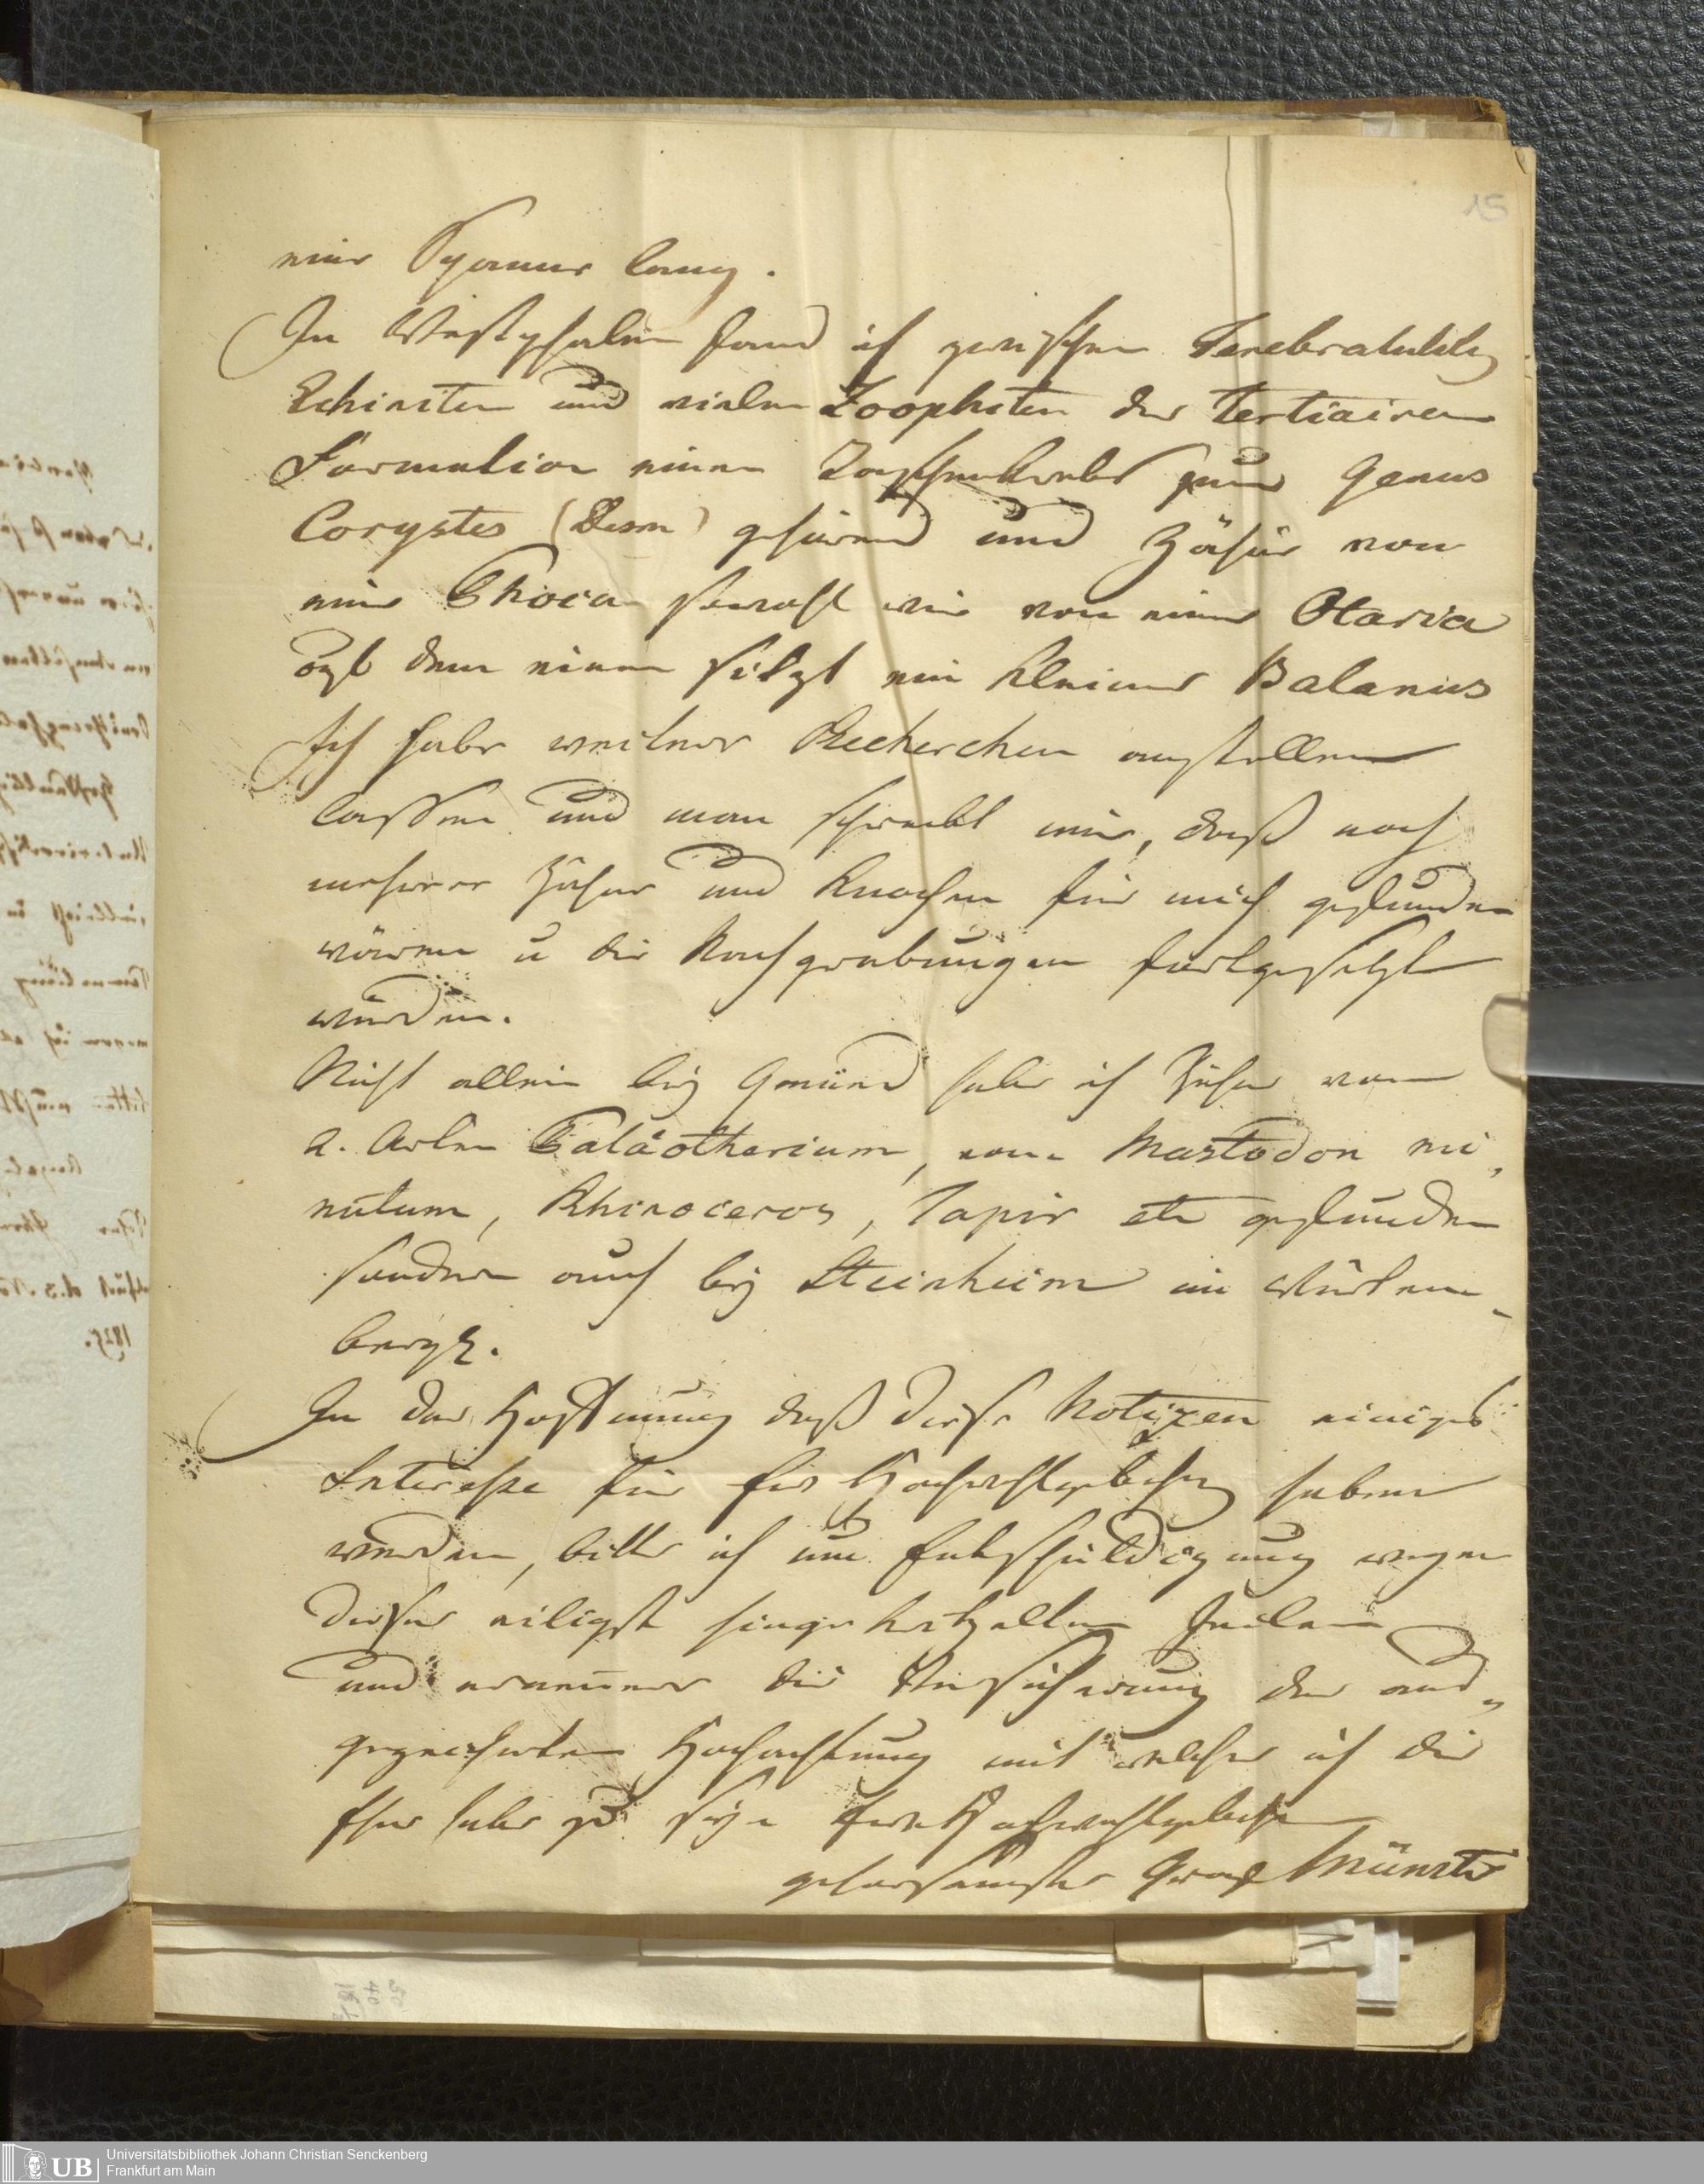 15
eine Spanne lang.
In Westphalen fand ich zwischen Terebratuln,
Echiniten und vielen Zoophiten der tertiairen
Formation einen Taschenkrebs zum Genus
Corystes (Desm) gehörend und Zähne von
einer Phoca sowohl wie von einer Otaria
auf dem einen sitzt ein kleiner Balanus
Ich habe weitere Recherchen anstellen
lassen und man schreibt mir, daß noch
mehrere Zähne und Knochen für mich gefunden
wären u die Nachgrabungen fortgesetzt
würden.
Nicht allein bey Gmünd habe ich Zähne von
2. Arten Paläotherium, vom Mastodon mi,
nutum, Rhinoceros, Tapir etc gefunden
sondern auch bey Steinheim im Würtem-
berg.
In der Hoffnung daß diese Notizen einiges
Interesse für Ew Hochwohlgeboren haben
werden, bitte ich um Entschuldigung wegen
dieser eiligst hingekritzelten Zeilen
und erneuere die Versicherung der aus,
gezeichneten Hochachtung mit welcher ich die
Ehre habe zu seyn Ew Hochwohlgeboren
gehorsamster Graf Münster
1825.
UB
Universitätsbibliothek Johann Christian Senckenberg
Frankfurt am Main